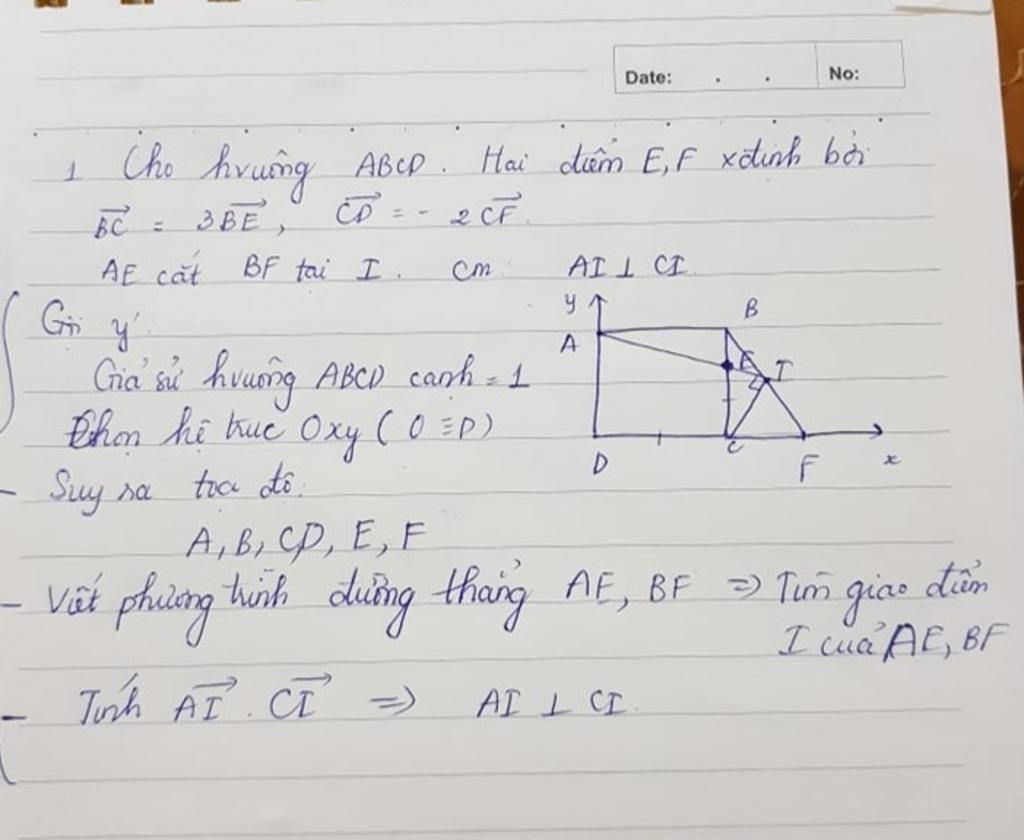 Date: . . No:
1 Cho hvuông ABCD. Hai điểm E, F xđịnh bởi
BC = 3BE, CD = - 2CF.
AE cắt BF tại I. Cm AI ⊥ CI
Gợi ý:
y B
A
E I
Giả sử hvuông ABCD cạnh = 1
Chọn hệ trục Oxy ( O ≡ D)
D C F x
- Suy ra tọa độ.
A, B, C, D, E, F
- Viết phương trình đường thẳng AE, BF => Tìm giao điểm
I của AE, BF
- Tính AI . CI => AI ⊥ CI.